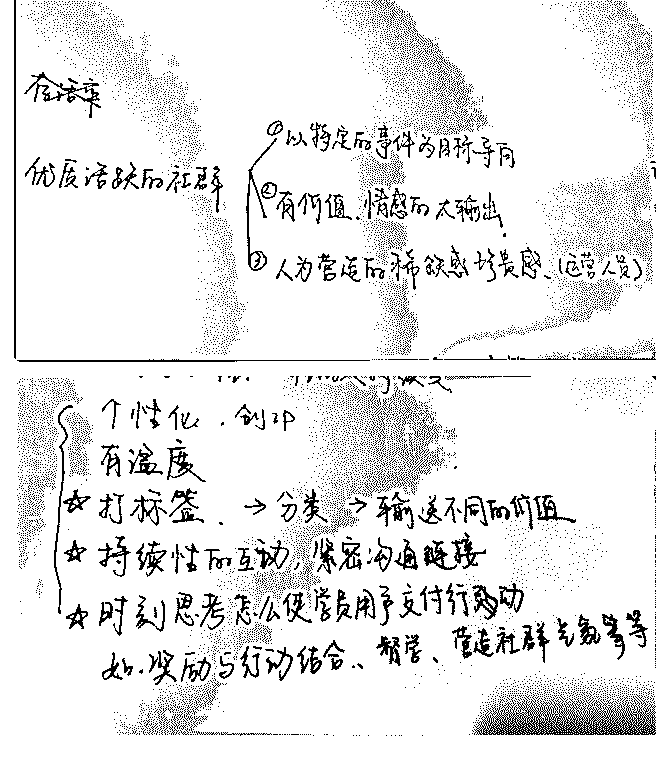 在语率
优质活跃的社群
① 以特定的事件为目标导向
② 有价值、情感的大输出
③ 人为营造的稀缺感珍贵感、(运营人员)
个性化、创IP
有温度
☆ 打标签、→ 分类 → 输送不同的价值
☆ 持续性的互动，紧密沟通链接
☆ 时刻思考怎么使学员用户交付行动
如：奖励与行动结合、督学、营造社群氛等等